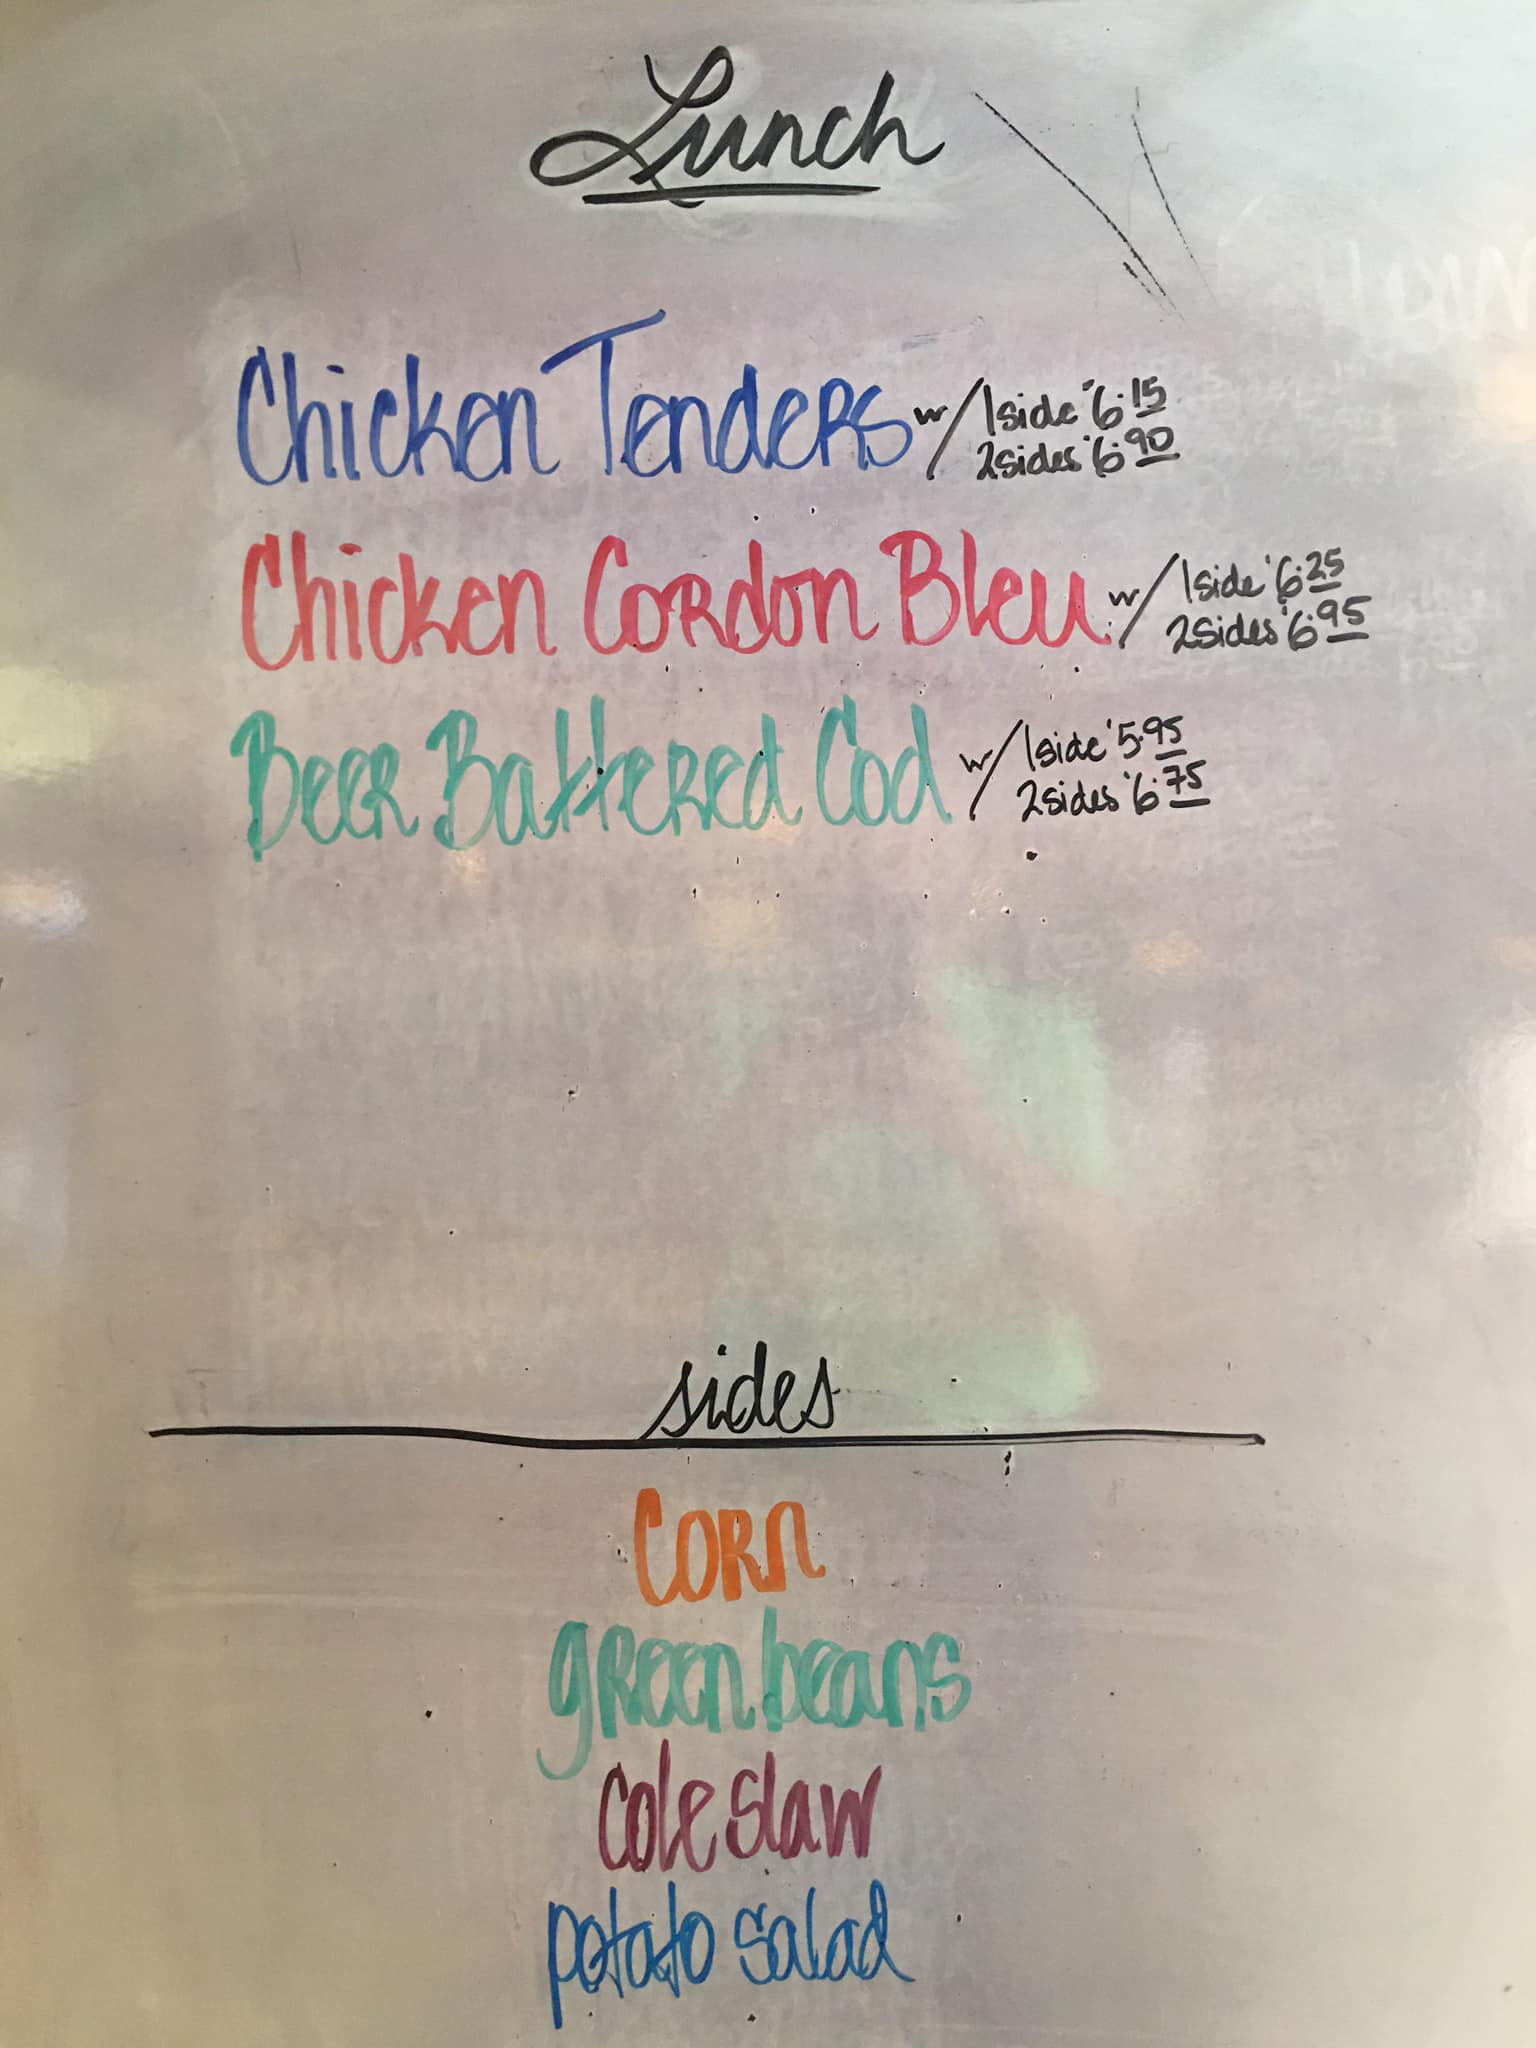 Lunch
Chicken Tenders w/ 1side '6.15
2sides '6.90
Chicken Cordon Bleu w/ 1side '6.25
2sides '6.95
Beer Battered Cod w/ 1side '5.95
2sides '6.75
sides
Corn
green beans
Cole slaw
potato salad